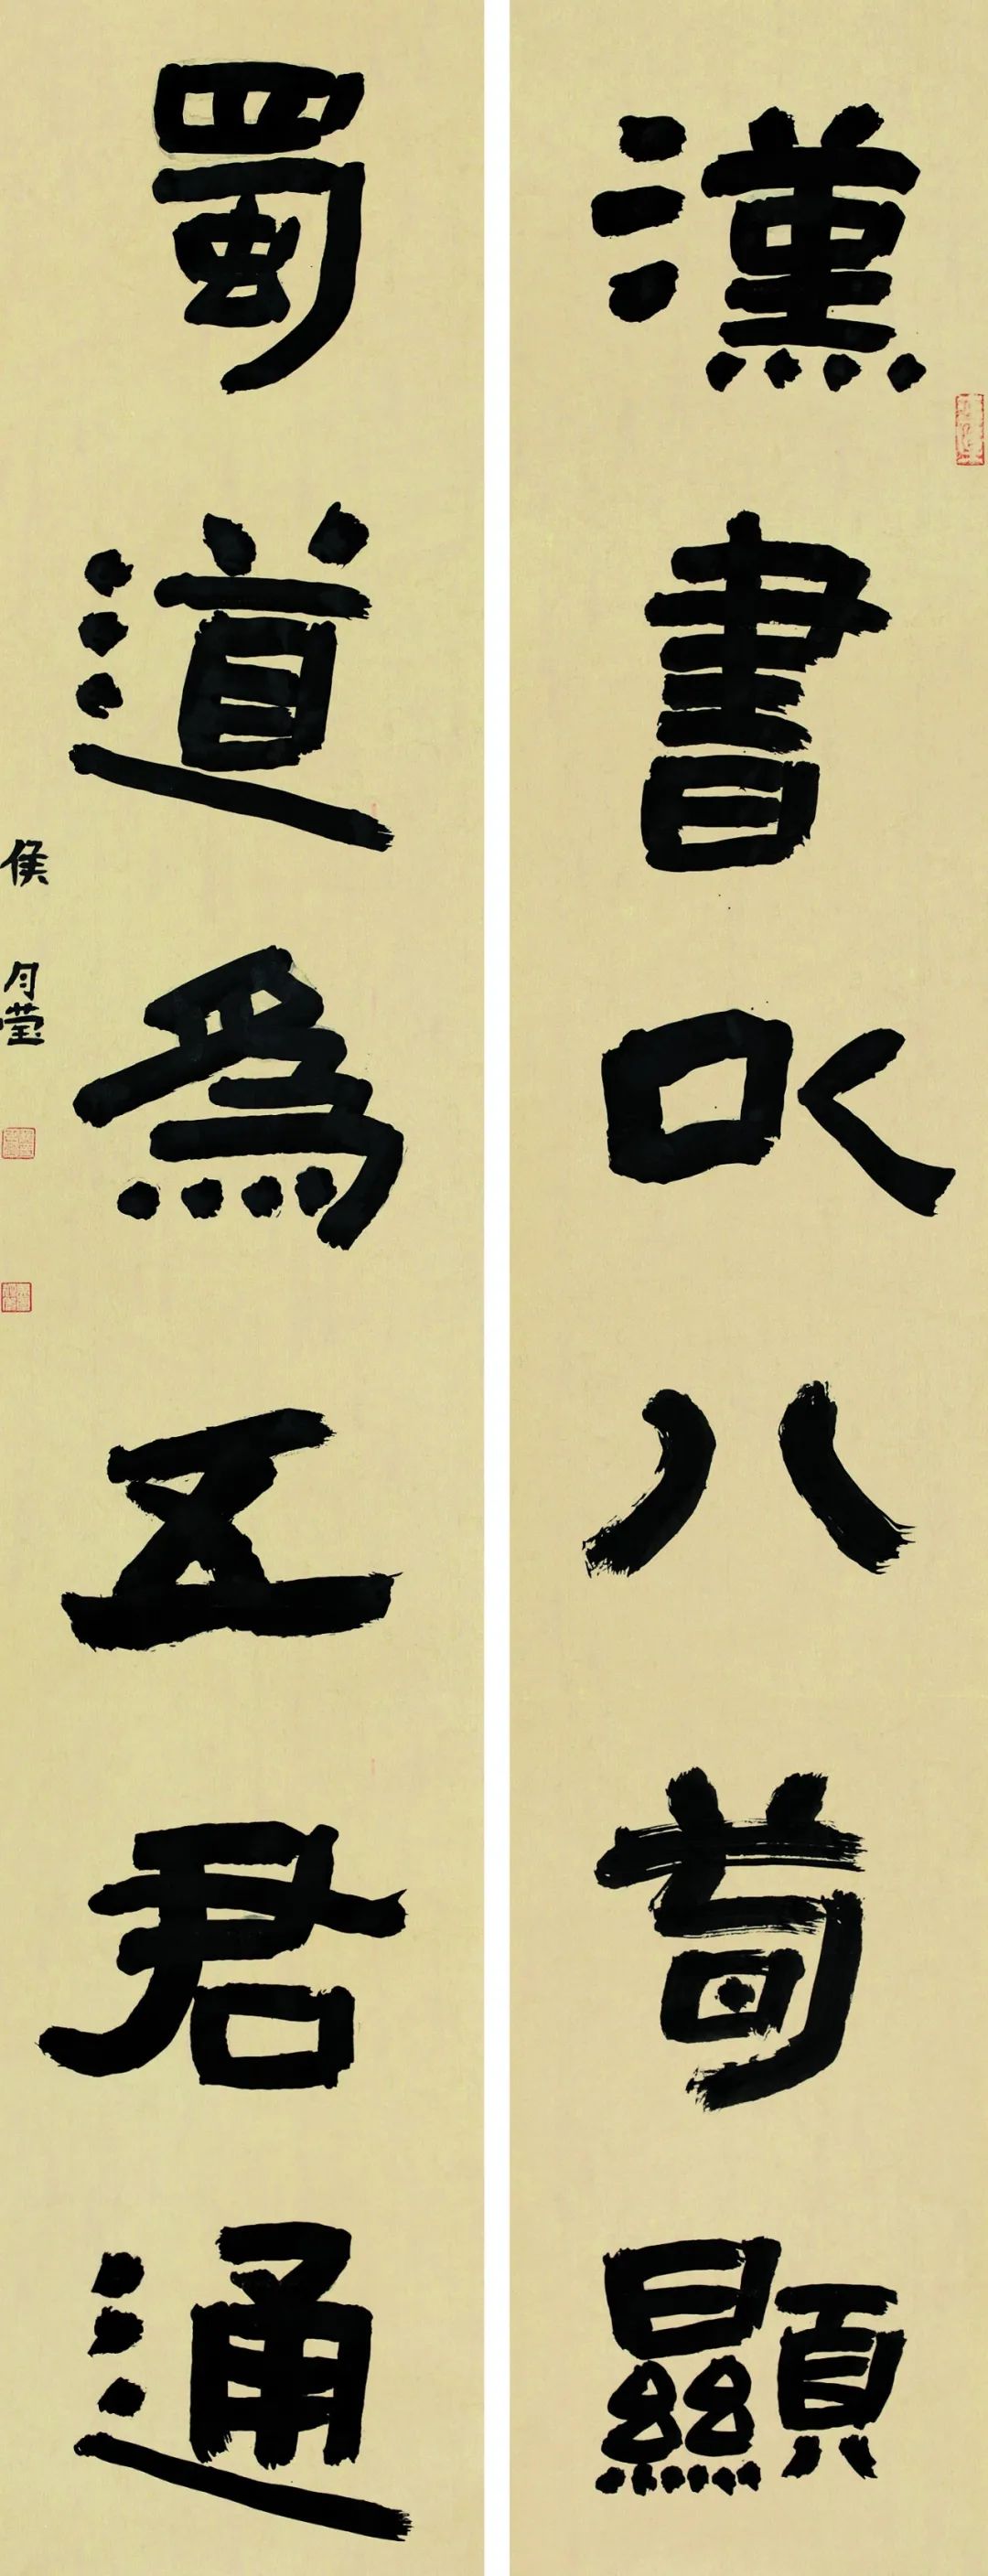 漢書以八荀顯
蜀道為五君通
侯月瑩